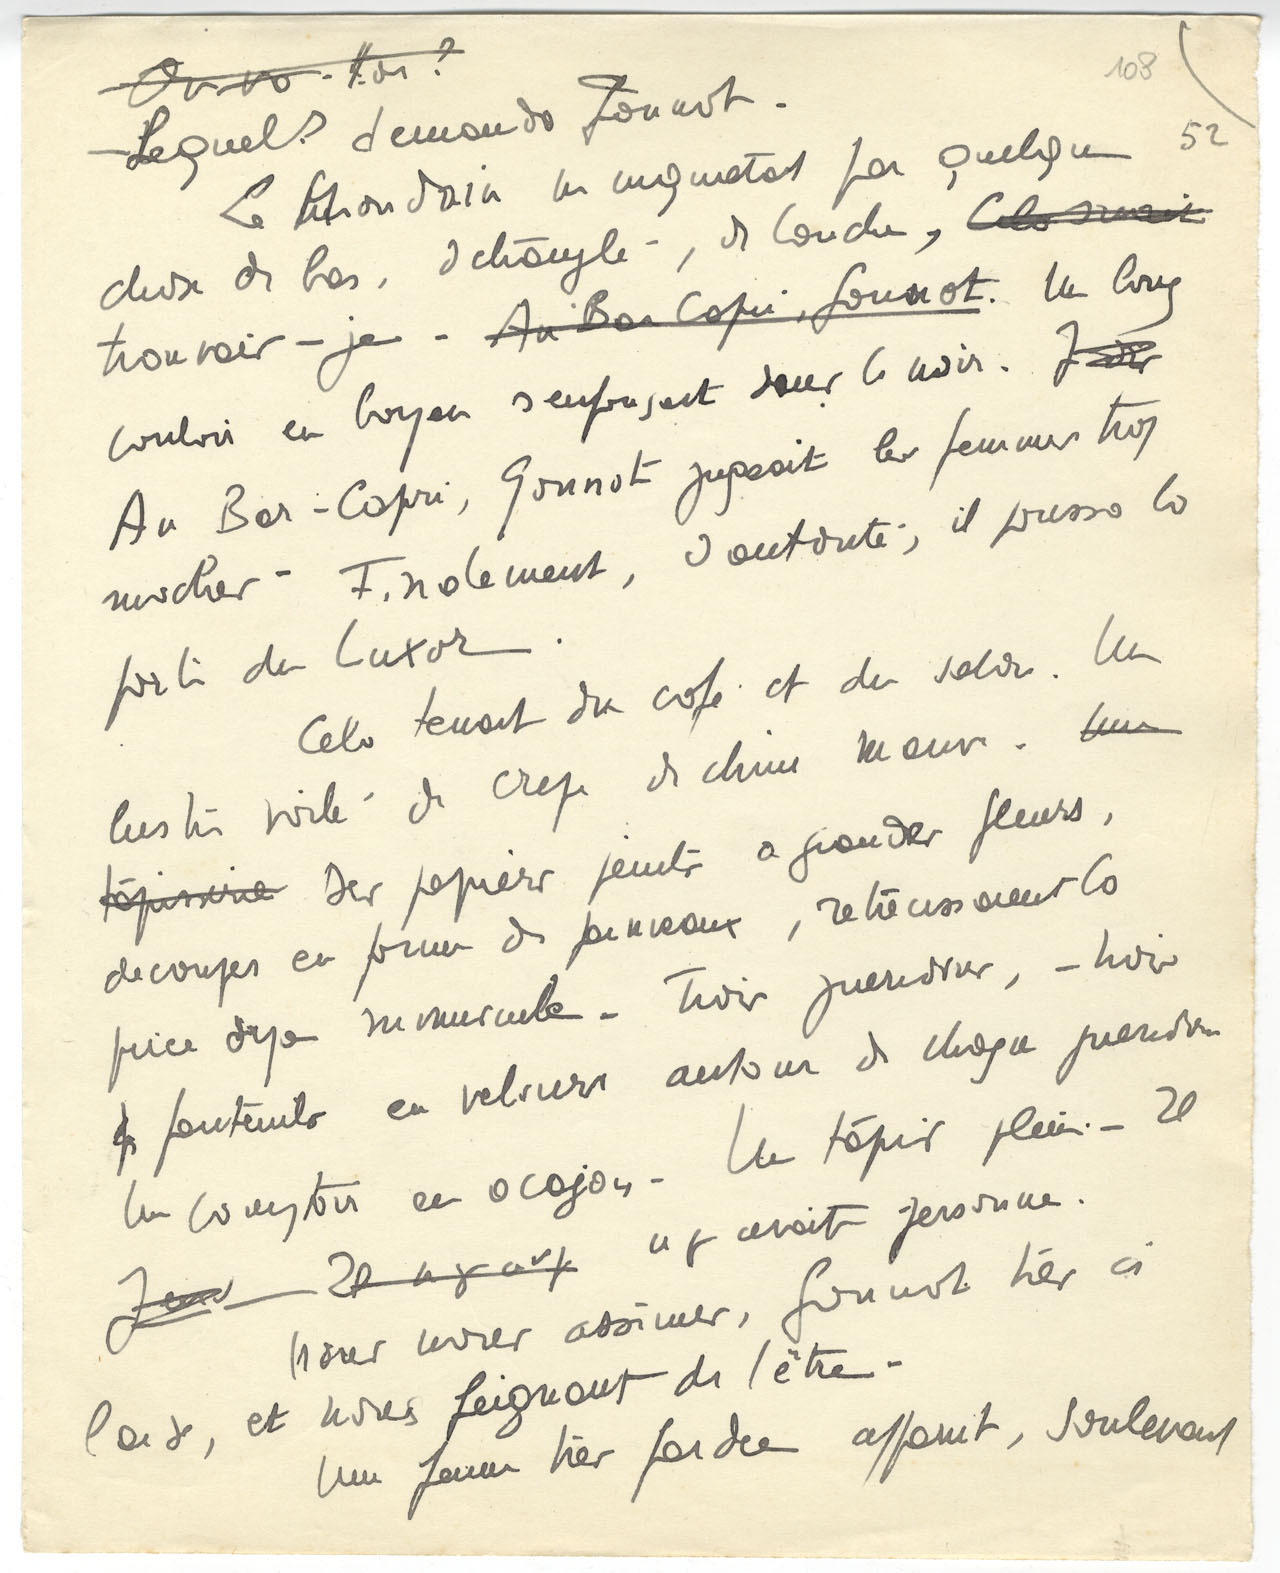 108
52
Où va-t-on ?
– Lequel ? demanda Gonnot.
Le Rhondain m'inquiétait par quelque
chose de bas, d'étranglé, de louche, Cela serait
trouvais-je. Au Bar Capri, Gonnot. Un long
couloir en boyau s'enfonçant dans le noir.
Au Bar-Capri, Gonnot jugeait les femmes trop
moches. Finalement, d'autorité, il poussa la
porte du Luxor.
Cela tenait du café et du salon. Un
lustre voilé de crêpe de chine mauve. Une
tapisserie Des papiers peints à grandes fleurs,
découpés en forme de panneaux, rétrécissaient la
pièce déjà minuscule. Trois guéridons, – trois
fauteuils en velours autour de chaque guéridon
Un comptoir en acajou. Un tapis plein. Il
Il n'y avait n'y avait personne.
Nous nous assîmes, Gonnot très à
l'aise, et nous feignant de l'être.
Une femme très fardée apparut, soulevant